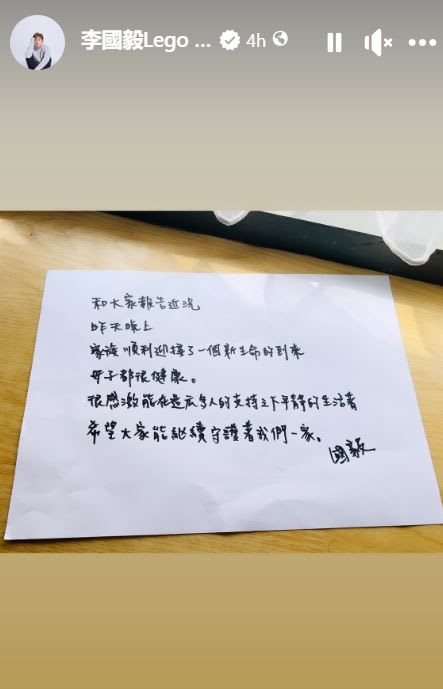 李國毅Lego ... 4h
和大家報告近況
昨天晚上
家族順利迎接了一個新生命的到來
母子都很健康。
很感激能在這麼多人的支持之下平靜的生活著
希望大家能繼續守護著我們一家。
國毅